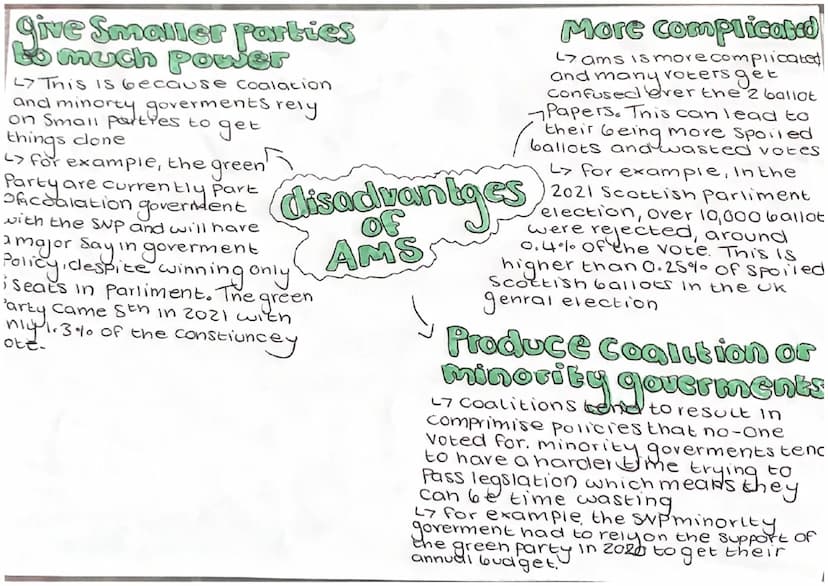 Give Smaller Parties
to much power
↳ This is because coalation
and minorty goverments rely
on Small parties to get
things done
↳ for example, the green
Party are currently part
of coalation goverment
with the SNP and will have
a major say in goverment
Policy, despite winning only
seats in Parliment. The green
arty came 5th in 2021 with
nly 1.3% of the constiuncey
ote.
disadvantges
of
AMS
More complicated
↳ ams is more complicated
and many voters get
confused over the 2 ballot
Papers. This can lead to
their being more spoiled
ballots and wasted votes
↳ for example, in the
2021 Scottish parliment
election, over 10,000 ballot
were rejected, around
0.4% of the vote. This is
higher than 0.25% of spoiled
Scottish ballots in the UK
genral election
Produce coalition or
minority goverments
↳ coalitions tend to result in
comprimise policies that no-one
voted for. minority goverments tend
to have a harder time trying to
pass legslation which means they
can be time wasting
↳ for example, the SNP minority
goverment had to rely on the support of
the green party in 2020 to get their
annual budget.